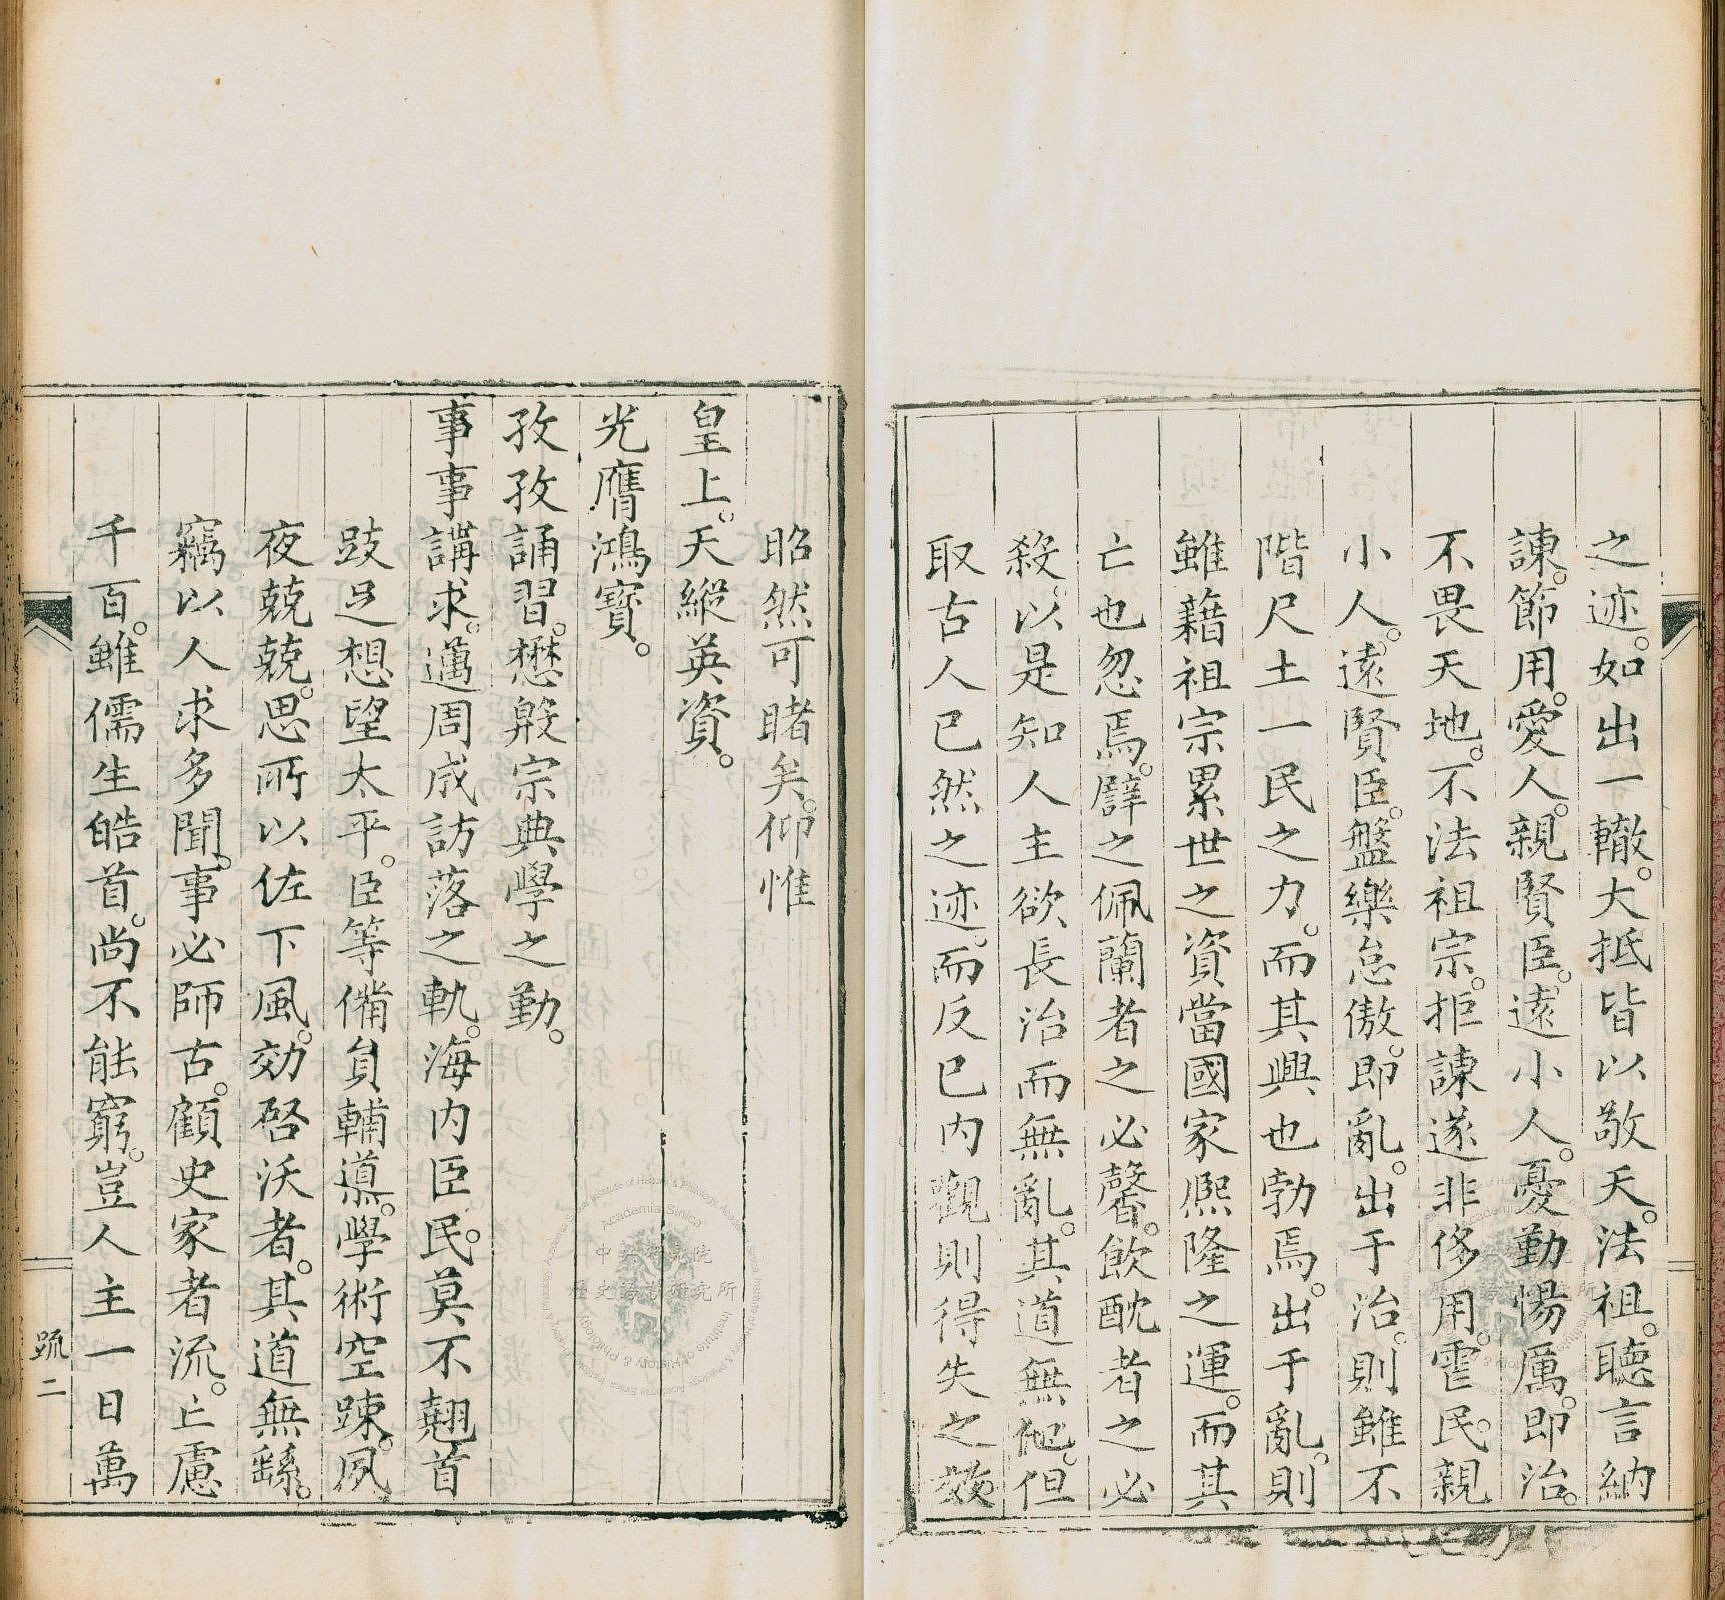 之迹。如出一轍。大抵皆以敬天。法祖。聽言納
諫。節用。愛人。親賢臣。遠小人。憂勤惕厲。即治。
不畏天地。不法祖宗。拒諫遂非侈用。虐民。親
小人。遠賢臣。盤樂怠傲。即亂。出于治。則雖不
階尺土一民之力。而其興也勃焉。出于亂。則
雖藉祖宗累世之資當國家熙隆之運。而其
亡也忽焉。譬之佩蘭者之必馨。飲酖者之必
殺。以是知人主欲長治而無亂。其道無他。但
取古人已然之迹。而反己內觀則得失之效
昭然可睹矣。仰惟
皇上。天縱英資。
光膺鴻寶。
孜孜誦習。懋殷宗典學之勤。
事事講求。邁周成訪落之軌。海內臣民。莫不翹首
跂足想望太平。臣等備員輔導。學術空踈。夙
夜兢兢。思所以佐下風。効啓沃者。其道無繇。
竊以人求多聞。事必師古。顧史家者流。亡慮
千百。雖儒生皓首。尚不能窮。豈人主一日萬
疏 二
中央研究院
歷史語言研究所
Academia Sinica
Institute of History & Philology